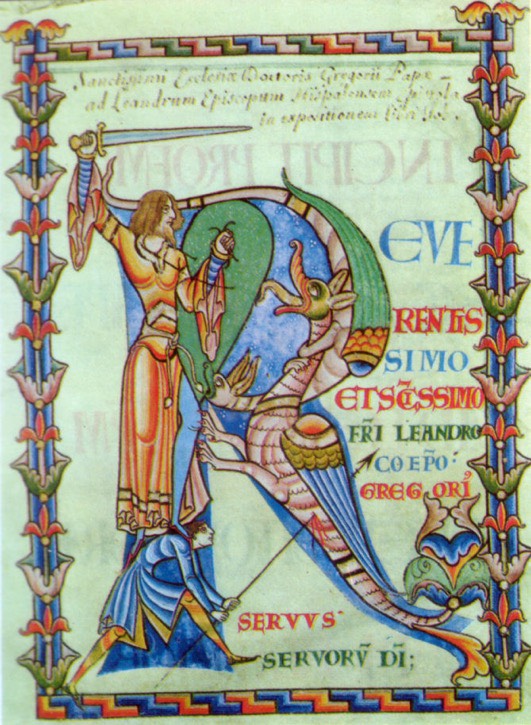 Sanctissimi Ecclesiæ Doctoris Gregorii Papæ
ad Leandrum Episcopum Hispalensem Epistola
in expositionem Libri Iob.
REVE
RENTIS
SIMO
ET SC̄ISSIMO
FR̄I LEANDRO
COEPŌ·
GREGORĪ
SERVVS·
SERVORV̄ DĪ;